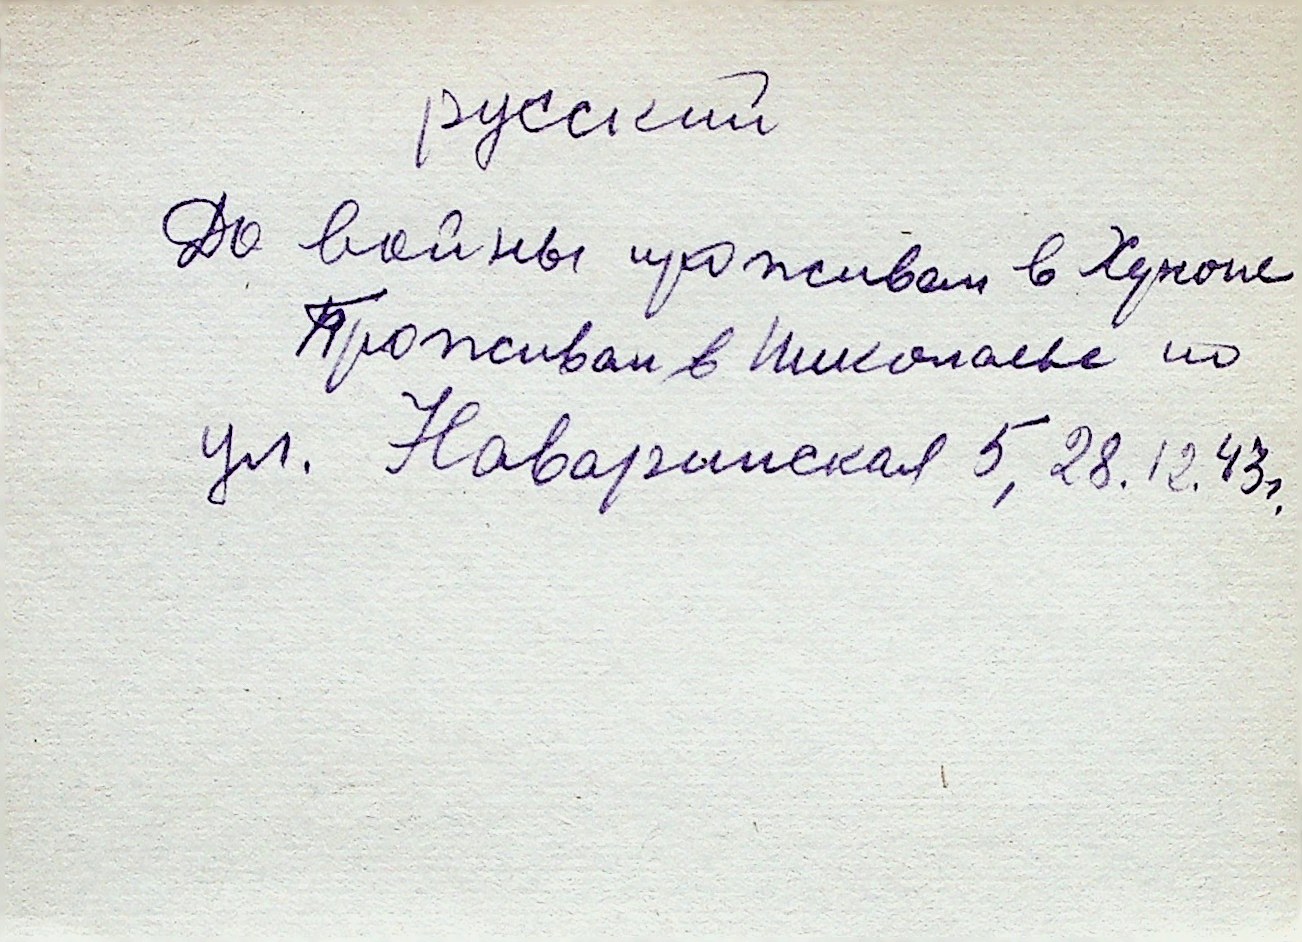 русский
До войны проживал в
Проживал в Николаеве по
ул. Наваринская 5, 28.12.43г.